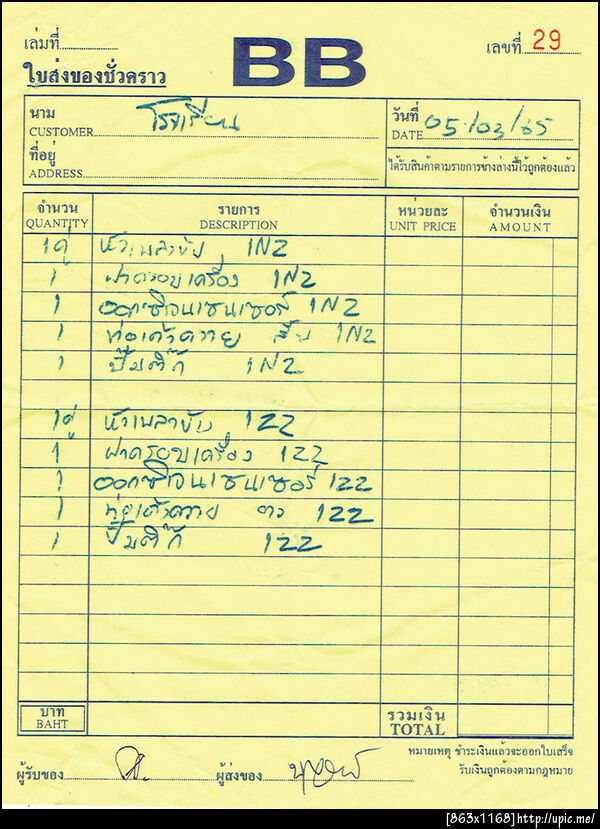 เล่มที่
BB
เลขที่ 29
ใบส่งของชั่วคราว
นาม
CUSTOMER โรงเรียน
วันที่
DATE 05/03/65
ที่อยู่
ADDRESS
ได้รับสินค้าตามรายการข้างล่างนี้ไว้ถูกต้องแล้ว
จำนวน รายการ หน่วยละ จำนวนเงิน
QUANTITY DESCRIPTION UNIT PRICE AMOUNT
1คู่ หัวเพลาขับ 1NZ
1 ฝาครอบเครื่อง 1NZ
1 ออกซิเจนเซนเซอร์ 1NZ
1 ท่อเขาควาย สั้น 1NZ
1 ปั๊มติ๊ก 1NZ
1คู่ หัวเพลาข้าง 122
1 ฝาครอบเครื่อง 122
1 ออกซิเจนเซนเซอร์ 122
1 ท่อเขาควาย ยาว 122
1 ปั๊มติ๊ก 122
บาท
BAHT
รวมเงิน
TOTAL
หมายเหตุ ชำระเงินแล้วจะออกใบเสร็จ
รับเงินถูกต้องตามกฎหมาย
ผู้รับของ ผู้ส่งของ
[863x1168]http://upic.me/